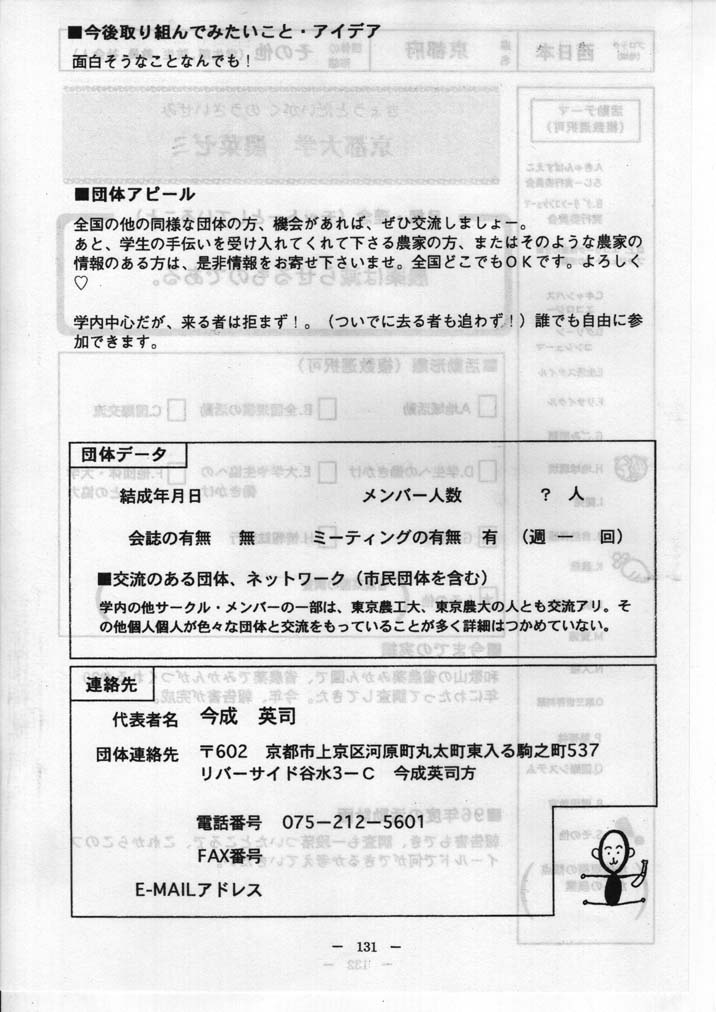 ■今後取り組んでみたいこと・アイデア
面白そうなことなんでも！
■団体アピール
全国の他の同様な団体の方、機会があれば、ぜひ交流しましょー。
あと、学生の手伝いを受け入れてくれて下さる農家の方、またはそのような農家の
情報のある方は、是非情報をお寄せ下さいませ。全国どこでもＯＫです。よろしく
♡
学内中心だが、来る者は拒まず！。（ついでに去る者も追わず！）誰でも自由に参
加できます。
団体データ
結成年月日　メンバー人数　？　人
会誌の有無　無　ミーティングの有無　有　（週一　回）
■交流のある団体、ネットワーク（市民団体を含む）
学内の他サークル・メンバーの一部は、東京農工大、東京農大の人とも交流アリ。そ
の他個人個人が色々な団体と交流をもっていることが多く詳細はつかめていない。
連絡先
代表者名　今成　英司
団体連絡先　〒602　京都市上京区河原町丸太町東入る駒之町537
リバーサイド谷水3－C　今成英司方
電話番号　075-212-5601
FAX番号
E-MAILアドレス
－ 131 －